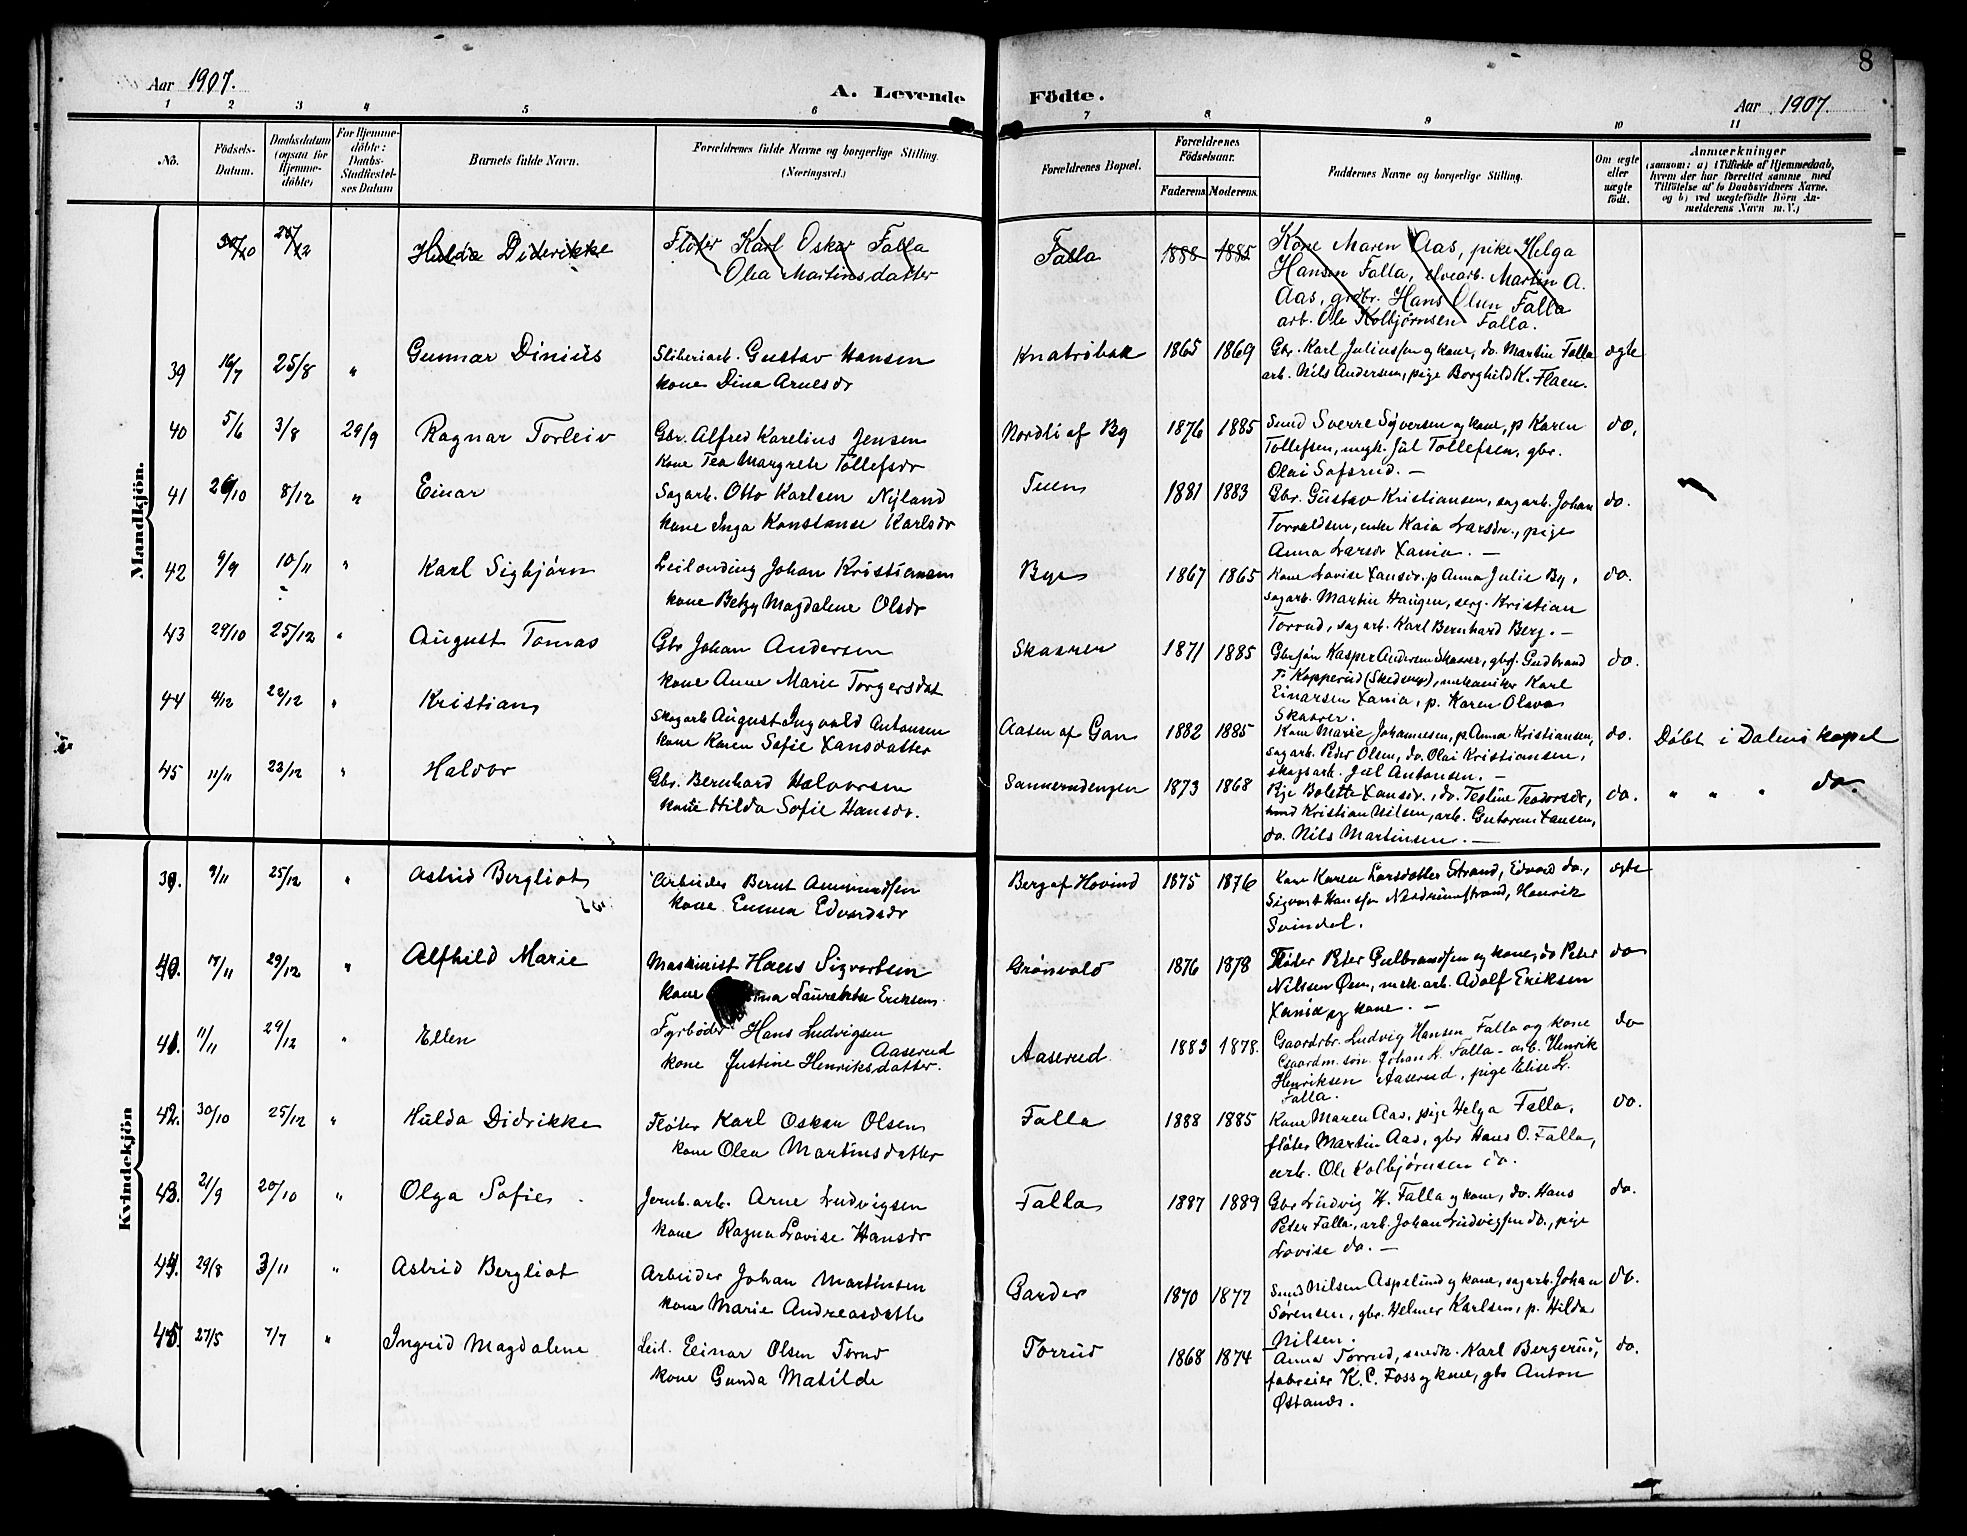 8
Aar 1907.
A. Levende Födte.
Aar 1907.
1 2 3 4 5 6 7 8 9 10 11
No. Födsels-Datum. Daabsdatum (ogsaa for Hjemme-döbte) For Hjemme-döbte: Daabs-Stadfæstel-ses Datum Barnets fulde Navn. Forældrenes fulde Navne og borgerlige Stilling. (Næringsvei.)
Forældrenes Bopæl. Forældrenes Födselsaar. Faderens Moderens. Faddernes Navne og borgerlige Stilling. Om ægte eller uægte födt.
Anmærkninger
(saasom: a) i Tilfælde af Hjemmedaab,
hvem der har forrettet samme med
Tilföielse af to Daabsvidners Navne.
og b) ved uægtefödte Börn An-
melderens Navn m. V.)
Mandkjön.
30/10 Hulda Diderikke Fløter Karl Oskar Falla Falla 1888 1885 Kone Maren Aas, pike Helga
Olea Martinsdatter Hansen Falla, elvearb. Martin A.
Aas, grdbr. Hans Olsen Falla
arb. Ole Kolbjørnsen Falla.
39 16/7 25/8 " Gunnar Dinius Sliberiarb. Gustav Hansen Knatrøbak 1865 1869 Gbr. Karl Juliussen og kone, do. Martin Falla ægte
kone Dina Arnesdr arb. Nils Andersen, pige Borghild K. Flaen.
40 5/6 3/8 29/9 Ragnar Torleiv Gbr. Alfred Karelius Jensen Nordli af By 1876 1885 Smed Sverre Syversen og kone, p Karen do.
kone Tea Margrete Tollefsdr Tollefsen, ungk. Jul Tollefsen, gbr.
Olai Sofsrud. —
41 26/10 8/12 " Einar Sagarb. Otto Karlsen Nyland Tuen 1881 1883 Gbr. Gustav Kristiansen, sagarb. Johan do.
kone Inga Konstanse Karlsdr Torvaldsen, enke Kaia Larsdr., pige
Anna Larsdr Xania. —
42 9/9 10/11 " Karl Sigbjørn Leilænding Johan Kristiansen Bye 1867 1865 Kone Lovise Hansdr. p Anna Julie By, do.
kone Betzy Magdalene Olsdr sagarb. Martin Haugen, serg. Kristian
Torrud, sagarb. Karl Bernhard Berg. —
43 29/10 25/12 " August Tomas Gbr Johan Andersen Skaarer 1871 1885 Gbrsøn Kasper Andersen Skaarer, gbrs. Gudbrand do.
kone Anne Marie Torgersdat P. Kopperud (Skedsmo), mekaniker Karl
Einarsen Xania, p. Karen Olava
Skaarer.
44 4/12 22/12 " Kristian Skogarb August Ingvald Antonsen Aasen af Gan 1882 1885 Kone Marie Johannesen, p. Anna Kristiansen, do. Döbt i Dalens kapel
kone Karen Sofie Hansdatter sagarb. Peder Olsen, do. Olai Kristiansen,
skogsarb. Jul Antonsen. —
45 11/11 23/12 " Haldor Gbr. Bernhard Halvorsen Sannerudengen 1873 1868 Pige Bolette Hansdr., do. Testine Teodorsdr, do. " " " do.
kone Hilda Sofie Hansdr. smed Kristian Nilsen, arb. Guttorm Hansen,
do. Nils Martinsen. —
Kvindekjön
39. 9/11 25/12 " Astrid Bergliot Arbeider Bernt Amundsen Berg af Hovind 1875 1876 Kone Karen Larsdatter Strand, Edvard do., ægte
kone Emma Edvardsdr Sigvart Hansen Nordrumstrand, Henrik
Svindal.
40. 17/11 29/12 " Alfhild Marie Maskinist Hans Sigvartsen Grønvold 1876 1878 Fløter Peter Gulbrandsen og kone, do Peter do
kone Lauretstse Eriksen. Nilssen Øen, mek. arb. Adolf Eriksen
Xania og kone. —
41. 11/11 29/12 " Ellen Fyrbøder Hans Ludvigsen Aaserud Aaserud 1883 1878. Gaardbr. Ludvig Hansen Falla og kone do
kone Justine Henriksdatter. Gaardm. søn Johan L. Falla – arb. Henrik
Henriksen Aaserud, pige Elise L.
Falla.
42. 30/10 25/12 " Hulda Didrikke Fløter Karl Oskar Olsen Falla 1888 1885 Kone Maren Aas, pige Helga Falla, do.
kone Olea Martinsdatter fløter Martin Aas, gbr Hans O. Falla,
arb. Ole Kolbjørnsen do.
43. 21/9 20/10 " Olga Sofie Jernb. arb. Arne Ludvigsen Falla 1887 1889 Gbr Ludvig H. Falla og kone, do. Hans do.
kone Ragna Lovise Hansdr Peter Falla, arb. Johan Ludvigsen do., pige
Lovise do. —
44. 29/8 3/11 " Astrid Bergliot Arbeider Johan Martinsen Garder 1870 1877 Smed Nilsen Aspelund og kone, sagarb. Johan do.
kone Marie Andreasdatter Sørensen, gbr. Helmer Karlsen, p. Hilda
Nilsen.
45. 27/5 7/7 " Ingrid Magdalene Leil. Einar Olsen Torrud Torrud 1868 1874 Anna Torrud, smedk. Karl Bergerud, do.
kone Gunda Matilde fabreier K. C. Foss og kone, gbr Anton
Østands.